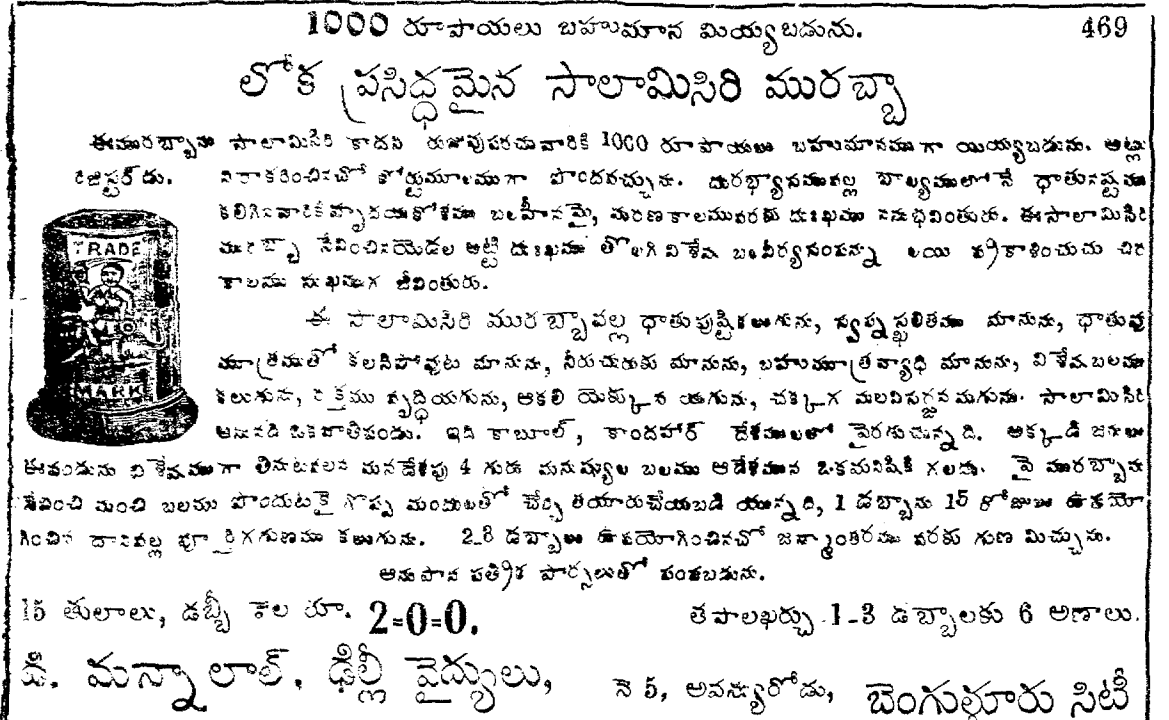 1000 రూపాయలు బహుమాన మియ్యబడును. 469
లోక ప్రసిద్ధమైన సాలామిసిరి మురబ్బా
ఈమురబ్బాను సాలామిసిరి కాదని రుజువుపరచువారికి 1000 రూపాయలు బహుమానముగా యియ్యబడును. అట్లు
రిజిస్టర్‌డు. నిరాకరించినచో కోర్టుమూలముగా పొందవచ్చును. దురభ్యాసమువల్ల బాల్యములోనే ధాతునష్టము
కలిగినవారికి హృదయకోశము బలహీనమై, మరణకాలమువరకు దుఃఖము ననుభవింతురు. ఈసాలామిసిరి
మురబ్బా సేవించినయెడల అట్టి దుఃఖము తొలగి విశేష బలవీర్యసంపన్ను లయి ప్రకాశించుచు చిర
కాలము సుఖముగ జీవింతురు.
TRADE
MARK
ఈ సాలామిసిరి మురబ్బావల్ల ధాతుపుష్టికలుగును, స్వప్నస్ఖలితము మానును, ధాతువు
మూత్రముతో కలసిపోవుట మానును, నీరుచురుకు మానును, బహుమూత్రవ్యాధి మానును, విశేషబలము
కలుగును, రక్తము వృద్ధియగును, ఆకలి యెక్కువ యగును, చక్కగ మలవిసర్జనమగును. సాలామిసిరి
అనునది ఒకజాతిపండు. ఇది కాబూల్, కాందహార్ దేశములలో పెరుగుచున్నది. అక్కడి జనులు
ఈపండును విశేషముగా తినుటవలన మనదేశపు 4 గురు మనుష్యుల బలము ఆదేశమున ఒకమనిషికి గలదు. పై మురబ్బాను
సేవించి మంచి బలము పొందుటకై గొప్ప మందులతో చేర్చి తయారుచేయబడి యున్నది, 1 డబ్బాను 15 రోజులు ఉపయో
గించిన దానివల్ల పూర్తిగ గుణము కలుగును. 2-3 డబ్బాలు ఉపయోగించినచో జన్మాంతరము వరకు గుణ మిచ్చును.
అనుపాన పత్రిక పార్సలుతో పంపబడును.
15 తులాలు, డబ్బీ వెల రూ. 2=0=0. తపాలఖర్చు 1-3 డబ్బాలకు 6 అణాలు.
డి. మన్నాలాల్, ఢిల్లీ వైద్యులు, నె 5, అవన్యురోడు, బెంగుళూరు సిటీ